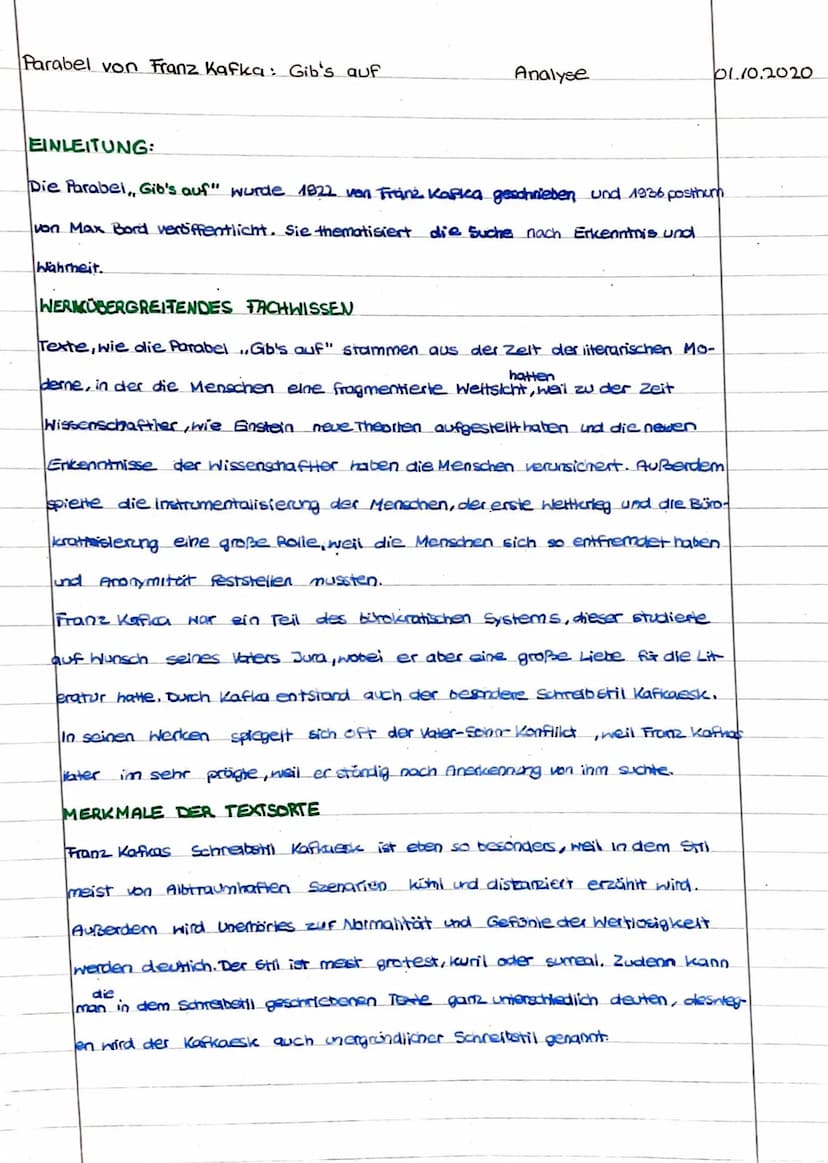 Parabel von Franz Kafka: Gib's auf Analyse 01.10.2020
EINLEITUNG:
Die Parabel „Gib's auf" wurde 1922 von Franz Kafka geschrieben und 1936 posthum
von Max Bord veröffentlicht. Sie thematisiert die Suche nach Erkenntnis und
Wahrheit.
WERKÜBERGREIFENDES FACHWISSEN
Texte, wie die Parabel „Gib's auf" stammen aus der Zeit der literarischen Mo-
derne, in der die Menschen eine fragmentierte Weltsicht hatten, weil zu der Zeit
Wissenschaftler, wie Einstein neue Theorien aufgestellt haben und die neuen
Erkenntnisse der Wissenschaftler haben die Menschen verunsichert. Außerdem
spielte die Instrumentalisierung der Menschen, der erste Weltkrieg und die Büro-
kratisierung eine große Rolle, weil die Menschen sich so entfremdet haben
und Anonymität feststellen mussten.
Franz Kafka war ein Teil des bürokratischen Systems, dieser studierte
auf Wunsch seines Vaters Jura, wobei er aber eine große Liebe für die Lit-
eratur hatte. Durch Kafka entstand auch der besondere Schreibstil Kafkaesk.
In seinen Werken spiegelt sich oft der Vater-Sohn-Konflikt, weil Franz Kafkas
Vater im sehr prägte, weil er ständig nach Anerkennung von ihm suchte.
MERKMALE DER TEXTSORTE
Franz Kafkas Schreibstil Kafkaesk ist eben so besonders, weil in dem Stil
meist von Albtraumhaften Szenarien kühl und distanziert erzählt wird.
Außerdem wird Unerhörtes zur Normalität und Gefühle der Wertlosigkeit
werden deutlich. Der Stil ist meist grotest, kuril oder surreal. Zudem kann
man die in dem Schreibstil geschriebenen Texte ganz unterschiedlich deuten, desweg-
en wird der Kafkaesk auch unergründlicher Schreibstil genannt.